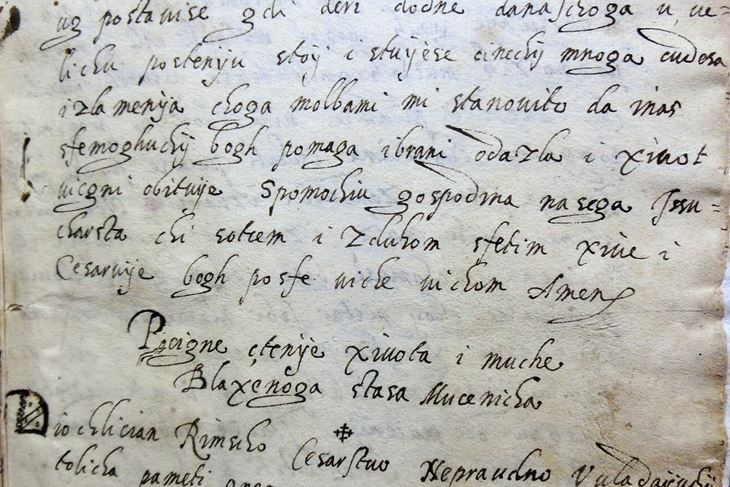 uz postavise gdi deri dodne danaschoga u ve=
lichu postenju stoj i stujese cinechi mnoga cudesa
i zlamenja choga molbami mi stanovito da inas
sfemoghuchij bogh pomaga ibrani odazla i xivot
vicgni obituije spomochiu gospodina nasega Jssu=
charsta chi sotcem i zduhom sfetim xive i
Cesaruije bogh posfe viche vichom Amen
Pocigne ctenije xivota i muche
Blaxenoga stasa Mucenicha
Diochlician Rimscho Cesarstvo Nepraudno Vuladajuchi
tolicha pameti